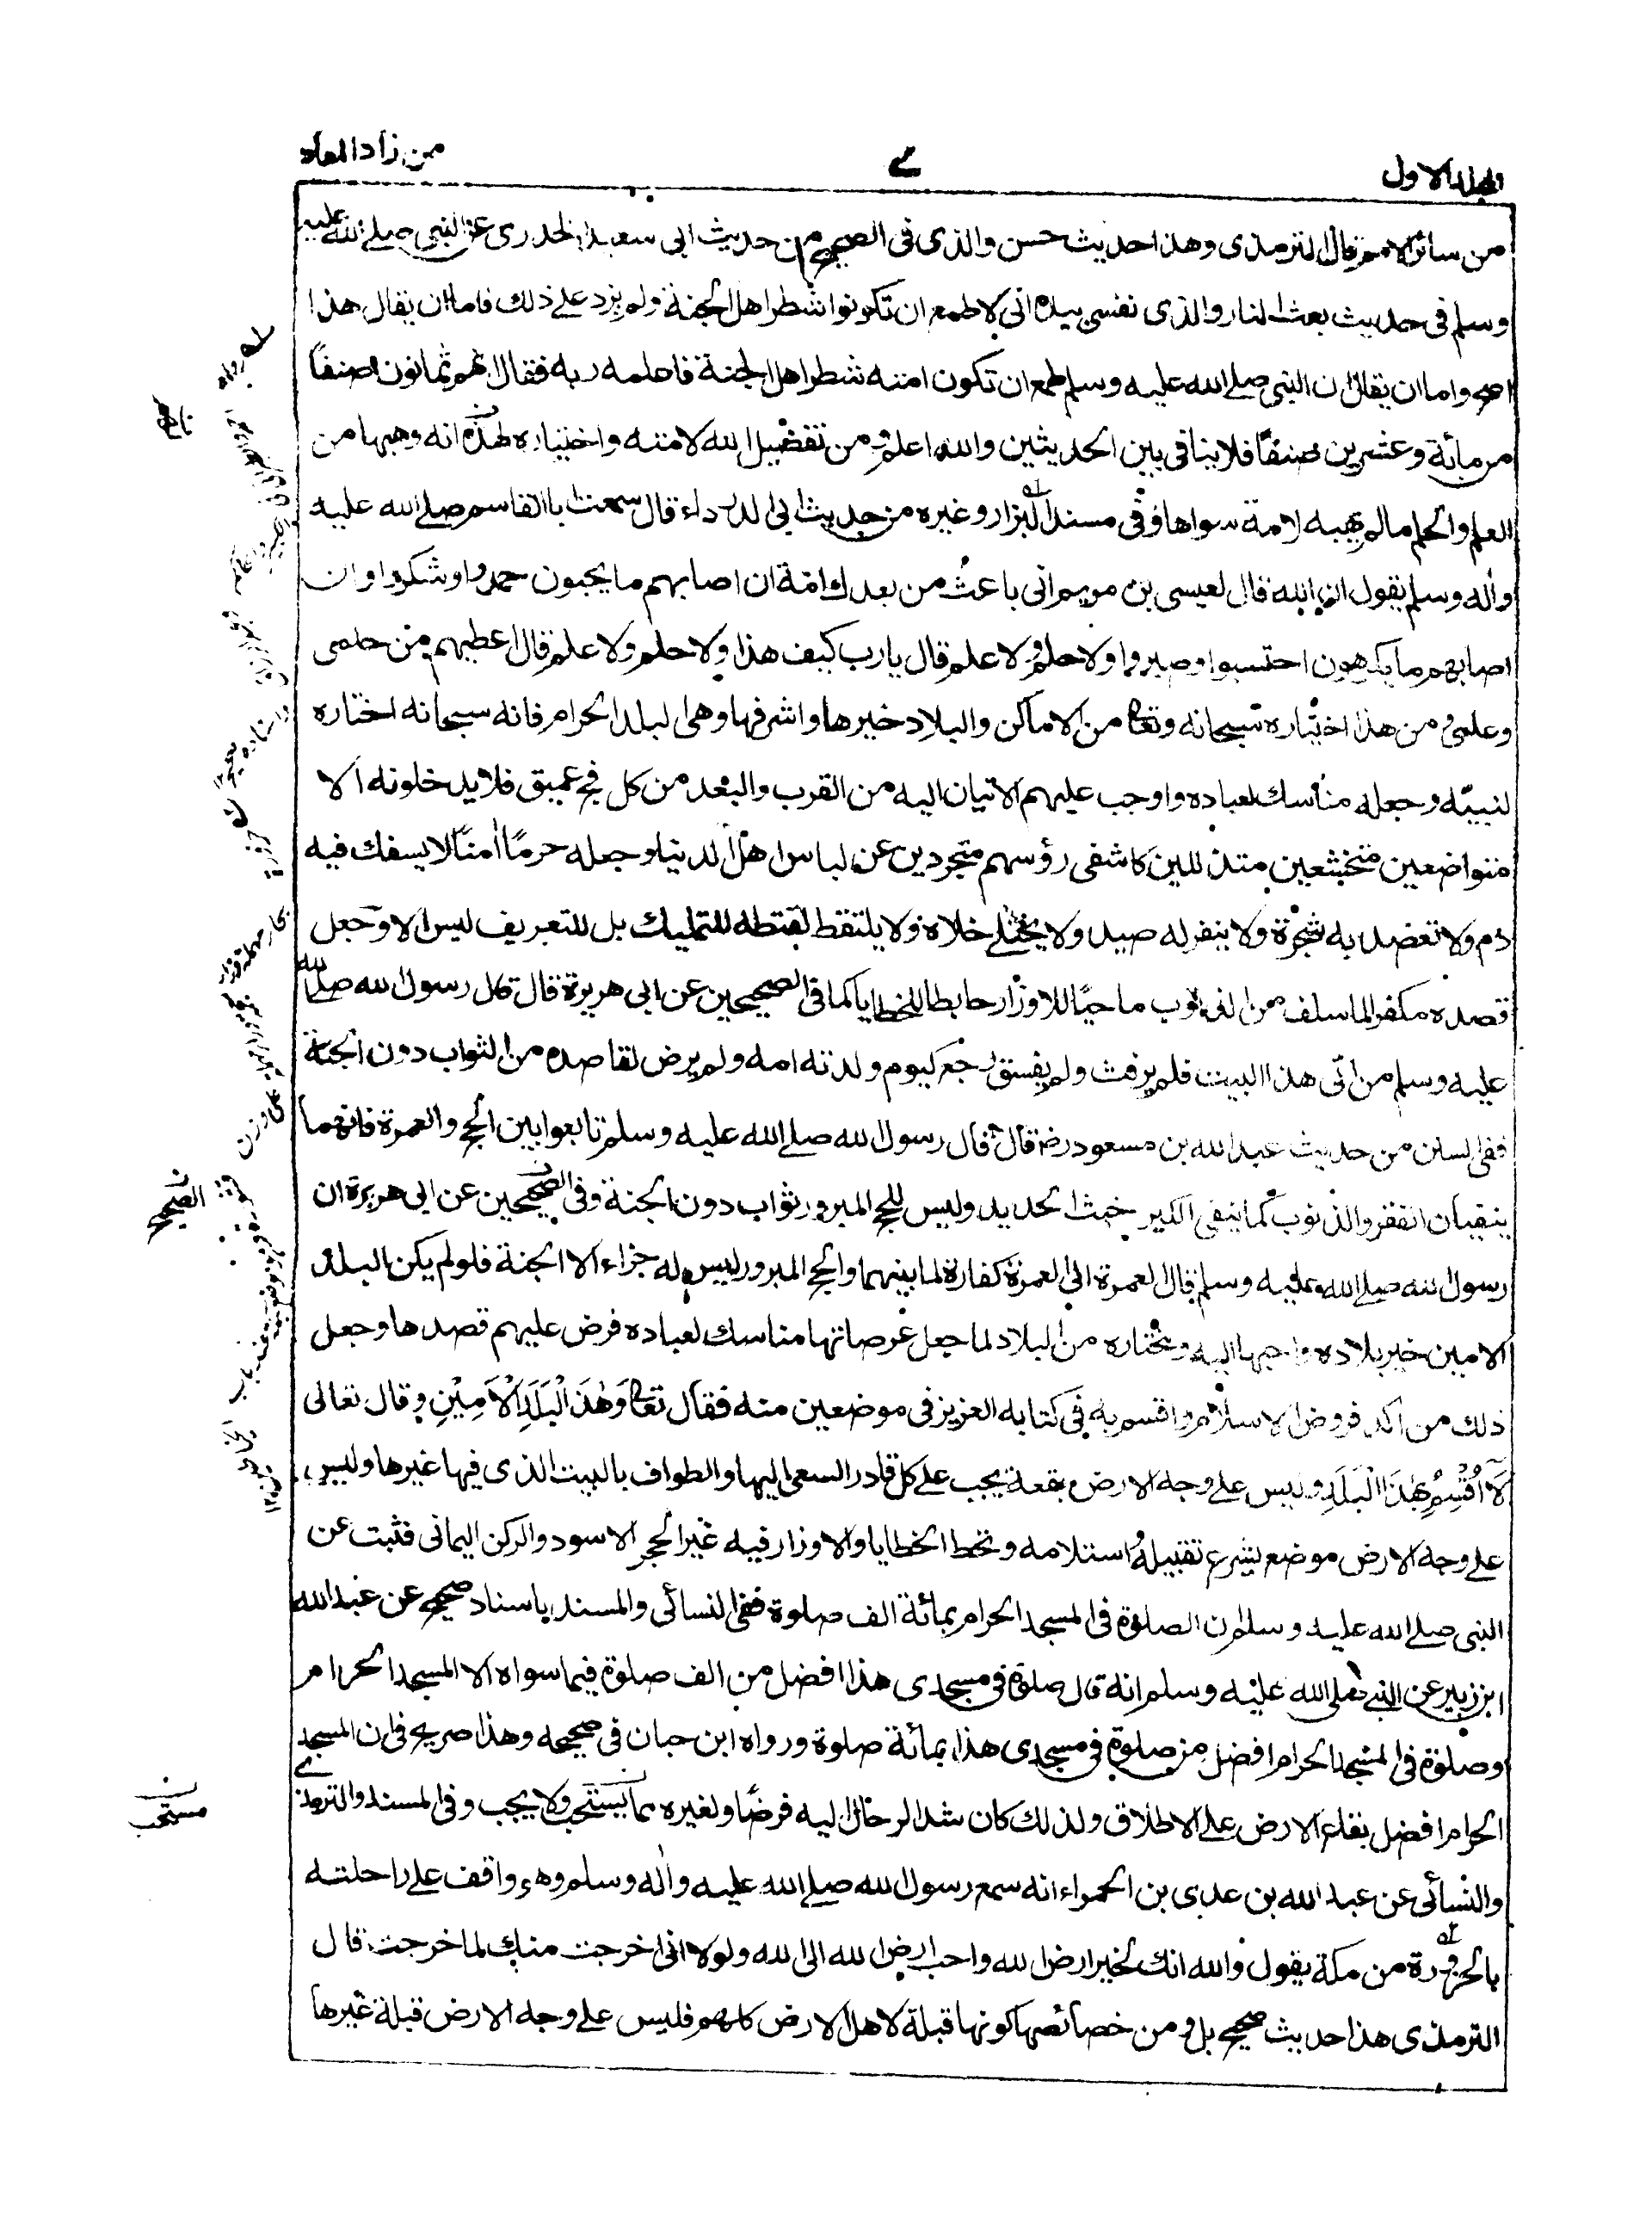 المجلد الاول
٧
من زاد المعاد
من سائر الامم قال الترمذى وهذا حديث حسن والذى فى الصحيح من حديث ابى سعيد الخدرى عن النبى صلے الله عليه
وسلم فى حديث بعث النار والذى نفسى بيده انى لاطمع ان تكونوا شطر اهل الجنة ولم يزد على ذلك فاما ان يقال هذا
اصح واما ان يقال ان النبى صلے الله عليه وسلم طمع ان تكون امته شطر اهل الجنة فاعلمه ربه فقال انهم ثمانون صنفًا
من مائة وعشرين صنفًا فلا ينافى بين الحديثين والله اعلم ومن تفضيل الله لامته واختياره لهذه انه وهبها من
العلم والحلم مالم يهبه لامة سواها وفى مسند البزار وغيره من حديث ابى الدرداء قال سمعت ابا القاسم صلے الله عليه
واٰله وسلم يقول ان الله قال لعيسى بن مريم انى باعث من بعدك امة ان اصابهم ما يحبون حمدوا وشكروا وان
اصابهم ما يكرهون احتسبوا وصبروا ولا حلم ولا علم قال يارب كيف هذا ولا حلم ولا علم قال اعطيهم من حلمى
وعلمى ومن هذا اختياره سبحانه وتعالى من الاماكن والبلاد خيرها واشرفها وهى البلد الحرام فانه سبحانه اختاره
لنبيّه وجعله مناسك لعباده واوجب عليهم الاتيان اليه من القرب والبعد من كل فج عميق فلا يدخلونه الا
متواضعين متخشعين متذللين كاشفى رؤسهم متجردين عن لباس اهل الدنيا وجعله حرمًا اٰمنًا لا يسفك فيه
دم ولا تعضد به شجرة ولا ينفر له صيد ولا يختلے خلاه ولا يلتقط لقطته للتمليك بل للتعريف ليس الا وجعل
قصده مكفرا لما سلف من الذنوب ماحيًا للاوزار حابطا للخطايا كما فى الصحيحين عن ابى هريرة قال قال رسول الله صلے الله
عليه وسلم من اتى هذا البيت فلم يرفث ولم يفسق رجع كيوم ولدته امه ولم يرض لقاصده من الثواب دون الجنة
ففى السنن من حديث عبد الله بن مسعود رضـ قال قال رسول الله صلے الله عليه وسلم تابعوا بين الحج والعمرة فانهما
ينفيان الفقر والذنوب كما ينفى الكير خبث الحديد وليس للحج المبرور ثواب دون الجنة وفى الصحيحين عن ابى هريرة ان
رسول الله صلے الله عليه وسلم قال العمرة الى العمرة كفارة لما بينهما والحج المبرور ليس له جزاء الا الجنة فلو لم يكن البلد
الامين خير بلاده واحبها اليه ومختاره من البلاد لما جعل عرصاتها مناسك لعباده فرض عليهم قصدها وجعل
ذلك من اكد فروض الاسلام واقسم به فى كتابه العزيز فى موضعين منه فقال تعالى وَهٰذَا الْبَلَدِ الْاَمِيْنِ وقال تعالى
لَآ اُقْسِمُ بِهٰذَا الْبَلَدِ وليس على وجه الارض بقعة يجب على كل قادر السعى اليها والطواف بالبيت الذى فيها غيرها وليس
على وجه الارض موضع يشرع تقبيله واستلامه وتحط الخطايا والاوزار فيه غير الحجر الاسود والركن اليمانى فثبت عن
النبى صلے الله عليه وسلم ان الصلوة فى المسجد الحرام بمائة الف صلوة ففى النسائى والمسند باسناد صحيح عن عبد الله
ابن زبير عن النبى صلے الله عليه وسلم انه قال صلوة فى مسجدى هذا افضل من الف صلوة فيما سواه الا المسجد الحرام
وصلوة فى المسجد الحرام افضل من صلوة فى مسجدى هذا بمائة صلوة ورواه ابن حبان فى صحيحه وهذا صريح فى ان المسجد
الحرام افضل بقاع الارض على الاطلاق ولذلك كان شد الرحال اليه فرضًا ولغيره مما يستحب ولا يجب وفى المسند والترمذے
والنسائى عن عبد الله بن عدى بن الحمراء انه سمع رسول الله صلے الله عليه واٰله وسلم وهو واقف على راحلته
بالحزورة من مكة يقول والله انك لخير ارض الله واحب ارض الله الى الله ولولا انى اخرجت منك لما خرجت قال
الترمذى هذا حديث صحيح بل ومن خصائصها كونها قبلة لاهل الارض كلهم فليس على وجه الارض قبلة غيرها
الصحيح
مستحب